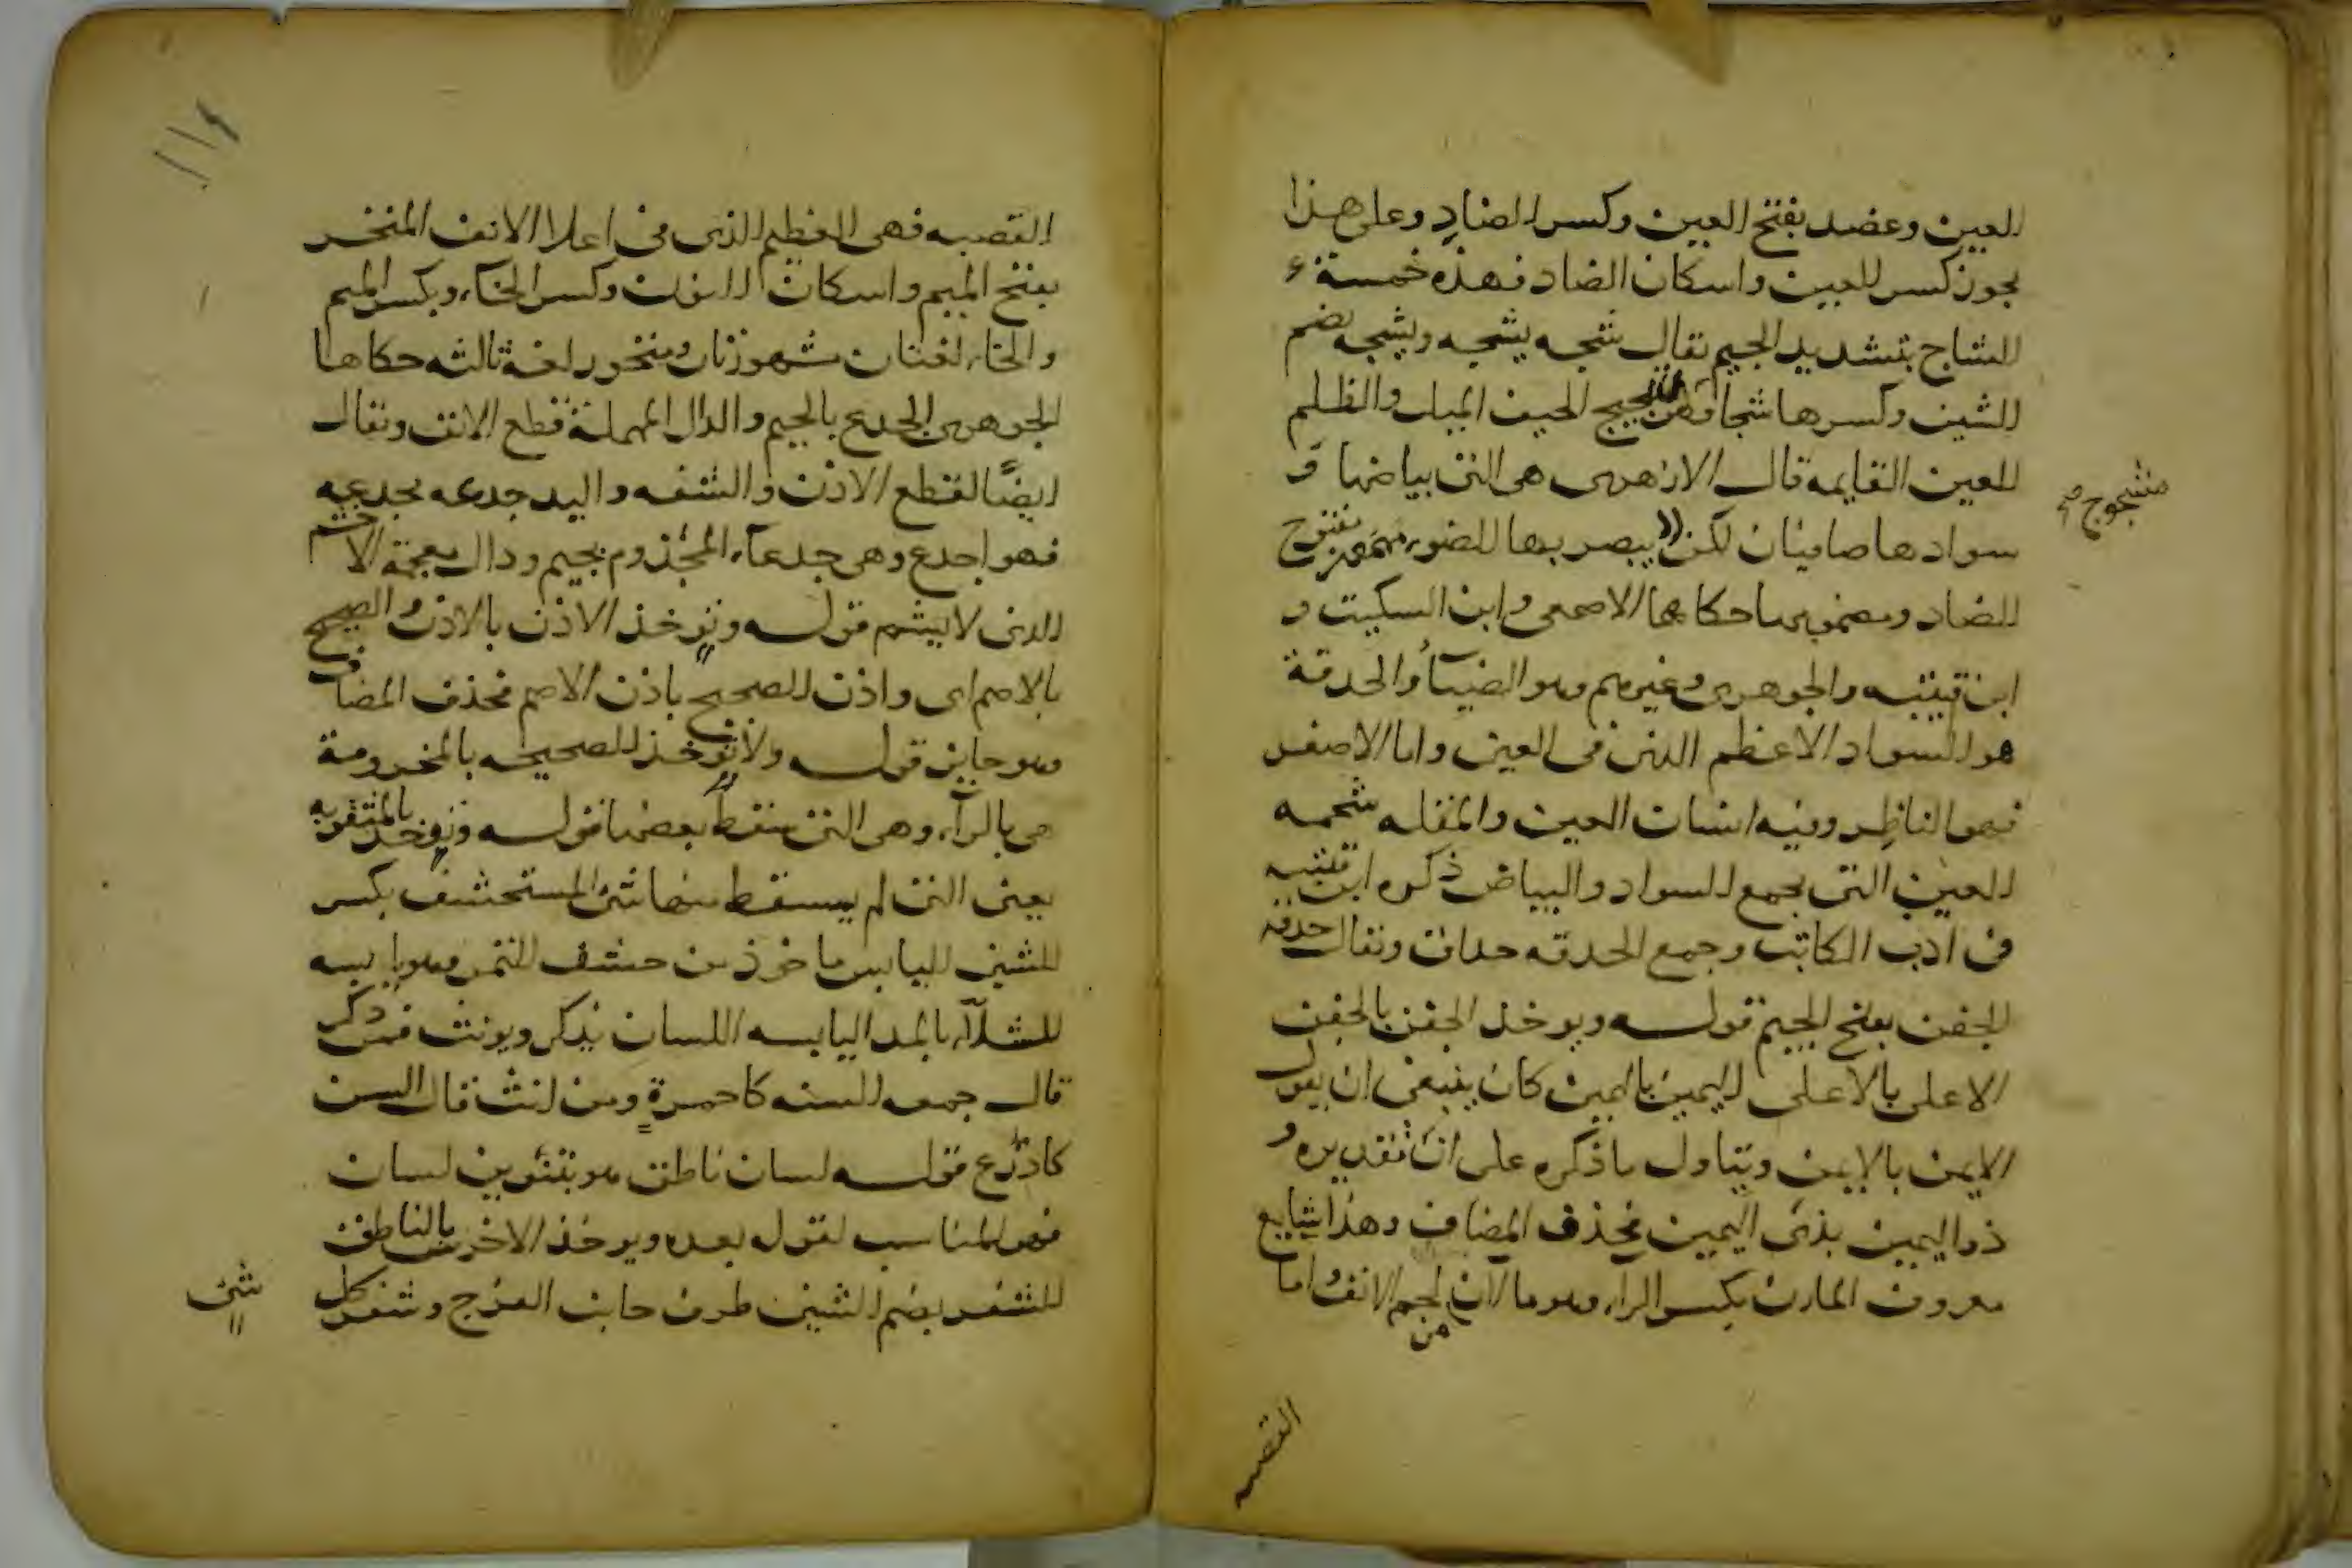 العين وعضد بفتح العين وكسر الضاد وعلى هذا
يجوز كسر العين واسكان الضاد فهذه خمسة
الشاج بتشديد الجيم يقال شجه يشجه ويشجه بضم
الشين وكسرها شجا فهو شجيج الحيف الميل والظلم
مشجوج صح
العين القايمه قال الازهرى هى التى بياضها و
سوادها صافيان لكن لا يبصر بها الضوء بفتح
الضاد وضمها حكاهما الاصمعى وابن السكيت و
ابن قتيبه والجوهرى وغيرهم وهو الضياء والحدقة
هو السواد الاعظم الذى فى العين واما الاصغر
فهو الناظر وفيه انسان العين والمقله شحمه
العين التى تجمع السواد والبياض ذكره ابن قتيبه
فى ادب الكاتب وجمع الحدقه حداق ويقال حدقه
الجفن بفتح الجيم قوله ويوخذ الجفن بالجفن
الاعلى بالاعلى اليمين باليمين كان ينبغى ان يقول
الايمن بالايمن ويتاول ما ذكره على ان تقديره و
ذو اليمين بذى اليمين فحذف المضاف وهذا شايع
معروف المارن بكسر الراء وهو ما لان من لحم الانف واما
القصبه
القصبه فهى العظيم الذى فى اعلا الانف المنخر
بفتح الميم واسكان النون وكسر الخاء وبكسر الميم
والخاء لغتان مشهورتان ومنخور لغة ثالثه حكاها
الجوهرى الجدع بالجيم والدال المهملة قطع الانف ويقال
ايضًا لقطع الاذن والشفه واليد جدعه يجدعه
فهو اجدع وهى جدعاء المجذوم بجيم وذال معجمة الاخشم
الذى لا يشم قوله وتوخذ الاذن بالاذن والصحيح
بالاصم اى واذن الصحيح باذن الاصم فحذف المضاف
وهو جايز قوله ولا توخذ الصحيحه بالمخرومة
هى بالراء وهى التى سقط بعضها قوله وتوخذ بالمثقوبه
يعنى التى لم يسقط منها شئ المستحشف بكسر
الشين اليابس ماخوذ من حشف التمر وهو يابسه
الشلاء بالمد اليابسه اللسان يذكر ويونث فمن ذكر
قال جمعه السنه كاحمرة ومن انث قال السن
كاذرع قوله لسان ناطق هو بتنوين لسان
فهو المناسب لقوله بعده ويوخذ الاخرس بالناطق
الشفر بضم الشين طرف جانب الفرج وشفر كل
شئ